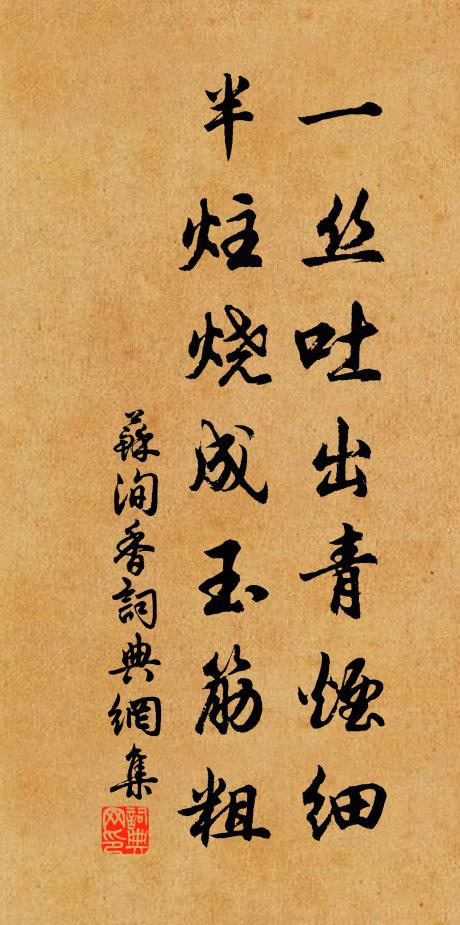 一丝吐出青煙细
半炷烧成玉筋粗
蘇洵香詞典網集
詞典网印